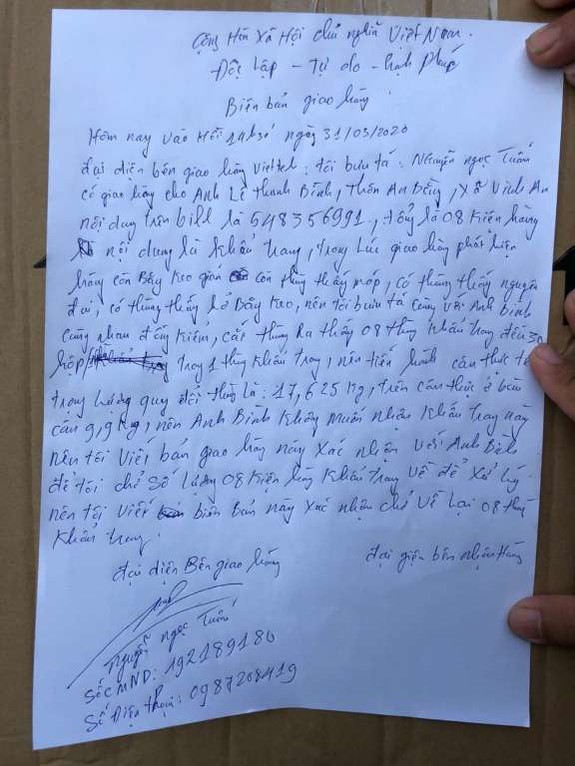 Cộng Hòa Xã Hội chủ nghĩa Việt Nam.
Độc lập - Tự do - hạnh phúc
Biên bản giao hàng
Hôm nay vào Hồi ngày 31/03/2020
đại diện bên giao hàng Viettel: tôi bưu tá: Nguyễn ngọc Tuấn
có giao hàng cho Anh Lê thanh Bình, Thôn An Bằng, xã Vinh An
nội dung trên bill là 548356991, tổng là 08 Kiện hàng
nội dung là Khẩu trang, trong Lúc giao hàng phát hiện
hàng còn Băng keo còn thùng thấy móp, có thùng thấy nguyên
đai, có thùng thấy hở Băng keo, nên tôi bưu tá cùng với Anh bình
cùng nhau đồng kiểm, cắt thùng Ra thấy 08 thùng khẩu trang đếm 30
hộp trong 1 thùng khẩu trang, nên tiến hành cân thực tế
trọng lượng quy đổi thùng là: 17,625 kg, trên cân thực ở
cân 9,9 kg, nên Anh Bình Không muốn nhận Khẩu trang này
nên tôi Viết bản giao hàng này xác nhận với Anh Bình
để tôi chở số lượng 08 kiện hàng Khẩu trang về để xử lý
nên tôi Viết biên Bản này xác nhận chở về lại 08 thùng
Khẩu trang.
đại diện Bên giao hàng
đại diện bên nhận Hàng
Nguyễn ngọc Tuấn
Số CMND: 192189180
Số Điện thoại: 0987208419